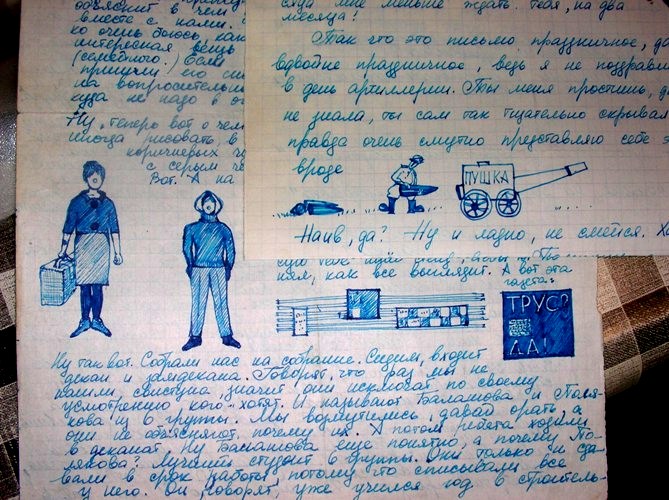 объяснит в чем
вместе с нами.
ко очень боюсь, как
интересная вещь
(семейного.) Если
пришучи его
на вопросительн
куда не надо в
Ну, теперь вот о чем
иногда рисовать, в
коричневых
с серым
Вот. А на
сяца мне меньше ждать тебя, на два
месяца!
Так что это письмо праздничное, да
вдвойне праздничное, ведь я не поздравил
в день артиллерии. Ты меня простишь, да
не знала, ты сам так тщательно скрывал
правда очень смутно представляю себе э
вроде
ПУШКА
Наив, да? Ну и ладно, не смейся. Ха
ням, как все выглядит. А вот эта
газета:
ТРУС?
ДА!
Ну так вот. Собрали нас на собрание. Сидим, входит
декан и замдекана. Говорят, что раз мы не
нашли свистуна, значит они исключат по своему
усмотрению кого хотят. И называют Балашова и Поля-
кова из 6 группы. Мы возмутились, давай орать, а
они не объясняют, почему их. А потом ребята ходили
в деканат. Ну Балашова еще понятно, а почему По-
лякова? Лучший студент в группы. Они только и сда-
вали в срок работы, потому что списывали все
у него. Он, говорят, уже учился год в строитель-